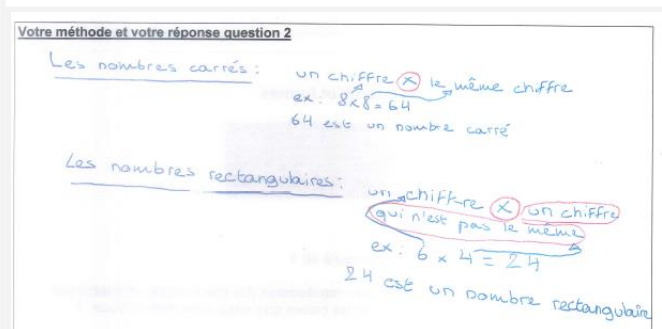 Votre méthode et votre réponse question 2
Les nombres carrés : un chiffre x le même chiffre
ex : 8 x 8 = 64
64 est un nombre carré
Les nombres rectangulaires : un chiffre x un chiffre
qui n'est pas le même
ex : 6 x 4 = 24
24 est un nombre rectangulaire